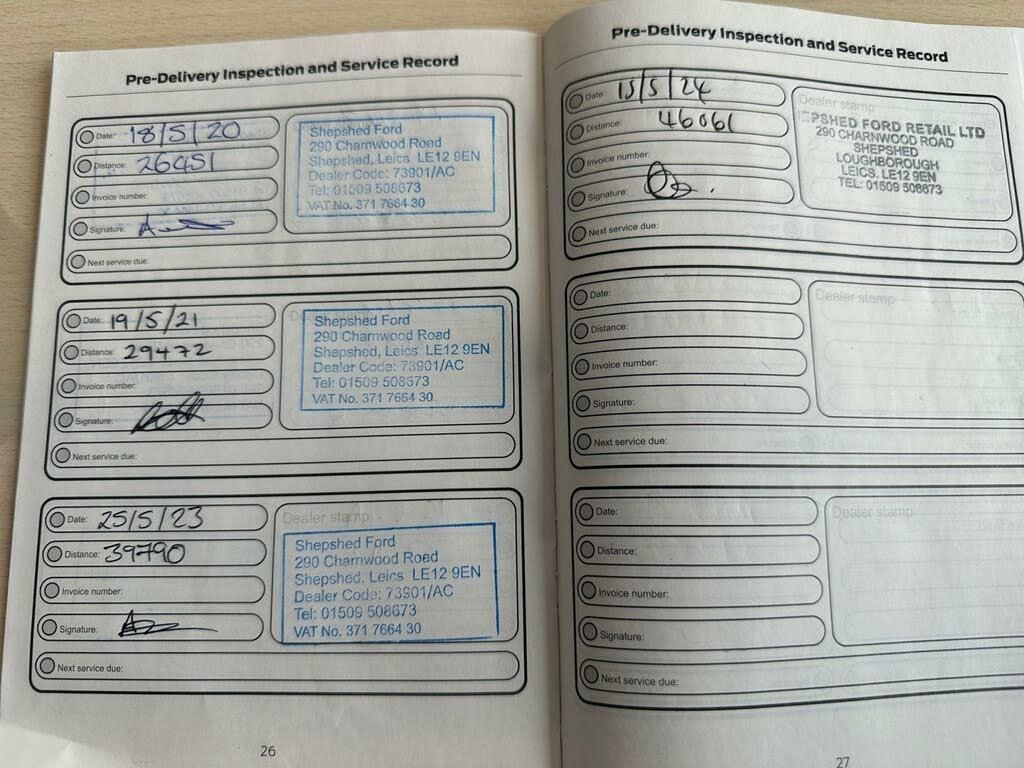 Pre-Delivery Inspection and Service Record
Date: 18/5/20
Distance: 26451
Invoice number:
Signature:
Next service due:
Shepshed Ford
290 Charnwood Road
Shepshed, Leics LE12 9EN
Dealer Code: 73901/AC
Tel: 01509 508673
VAT No. 371 7664 30
Date: 19/5/21
Distance: 29472
Invoice number:
Signature:
Next service due:
Shepshed Ford
290 Charnwood Road
Shepshed, Leics LE12 9EN
Dealer Code: 73901/AC
Tel: 01509 508673
VAT No. 371 7664 30
Date: 25/5/23
Distance: 39790
Invoice number:
Signature:
Next service due:
Dealer stamp
Shepshed Ford
290 Charnwood Road
Shepshed, Leics LE12 9EN
Dealer Code: 73901/AC
Tel: 01509 508673
VAT No. 371 7664 30
26
Pre-Delivery Inspection and Service Record
Date: 15/5/24
Distance: 46061
Invoice number:
Signature:
Next service due:
Dealer stamp
SHEPSHED FORD RETAIL LTD
290 CHARNWOOD ROAD
SHEPSHED
LOUGHBOROUGH
LEICS. LE12 9EN
TEL: 01509 508673
Date:
Distance:
Invoice number:
Signature:
Next service due:
Dealer stamp
Date:
Distance:
Invoice number:
Signature:
Next service due:
Dealer stamp
27